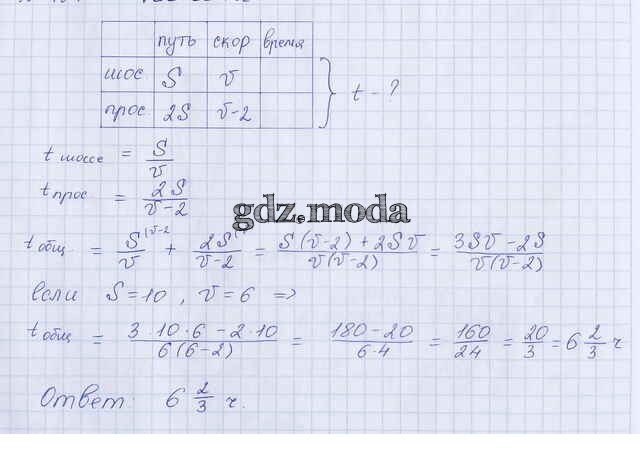 путь скор время
шос. S v
прос. 2S v-2
t - ?
t шоссе = S/v
t прос. = 2S/(v-2)
gdz.moda
t общ. = S/v + 2S/(v-2) = (S(v-2)+2Sv)/(v(v-2)) = (3Sv-2S)/(v(v-2))
если S=10, v=6 =>
t общ = (3·10·6-2·10)/(6(6-2)) = (180-20)/(6·4) = 160/24 = 20/3 = 6 2/3 ч
Ответ: 6 2/3 ч.